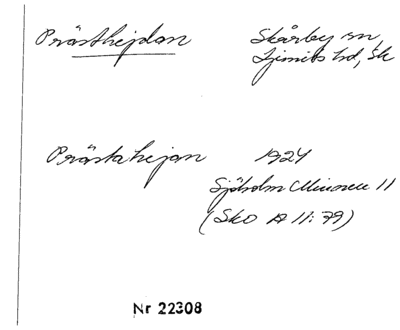 Prästhejdan Skårby sn,
Ljunits hd, Sk
Prästahejan 1924
Sjöholm Minnen 11
(Sko A 11:79)
Nr 22308